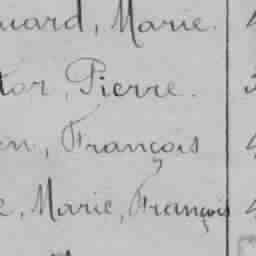 uard, Marie.
tor, Pierre.
en, François
e, Marie, François